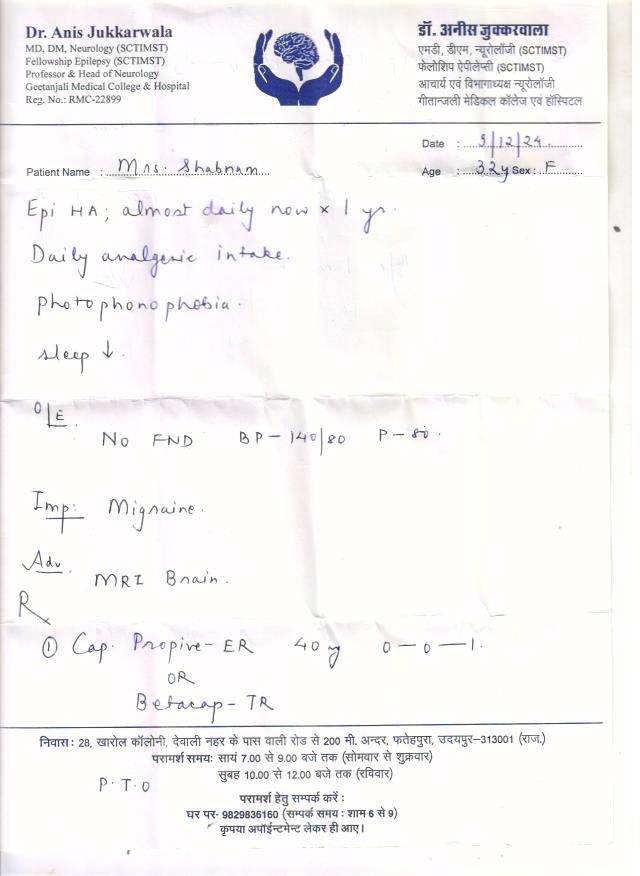 Dr. Anis Jukkarwala
MD, DM, Neurology (SCTIMST)
Fellowship Epilepsy (SCTIMST)
Professor & Head of Neurology
Geetanjali Medical College & Hospital
Reg. No.: RMC-22899
डॉ. अनीस जुक्करवाला
एमडी, डीएम, न्यूरोलॉजी (SCTIMST)
फेलोशिप ऐपीलेप्सी (SCTIMST)
आचार्य एवं विभागाध्यक्ष न्यूरोलॉजी
गीतान्जली मेडिकल कॉलेज एवं हॉस्पिटल
Date : 9/12/24
Patient Name : Mrs. Shabnam
Age : 32y Sex : F
Epi HA; almost daily now x 1 yr.
Daily analgesic intake.
Photophonophobia.
sleep ↓.
O/E
No FND BP - 140/80 P - 80.
Imp: Migraine.
Adv.
MRI Brain.
Rx
① Cap. Propive-ER 40 mg 0-0-1.
OR
Betacap-TR
निवास: 28, खारोल कॉलोनी, देवाली नहर के पास वाली रोड से 200 मी. अन्दर, फतेहपुरा, उदयपुर–313001 (राज.)
परामर्श समय: सायं 7.00 से 9.00 बजे तक (सोमवार से शुक्रवार)
सुबह 10.00 से 12.00 बजे तक (रविवार)
P.T.O
परामर्श हेतु सम्पर्क करें :
घर पर- 9829836160 (सम्पर्क समय : शाम 6 से 9)
कृपया अपॉईन्टमेन्ट लेकर ही आए।